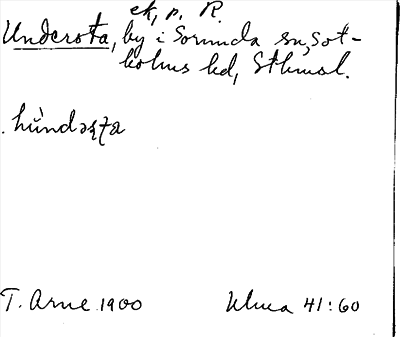 ek, p. R.
Underota, by i Sorunda sn, Sot-
holms hd, Sthmsl.
hùndəṣʈa
T. Arne 1900 Ulma 41:60